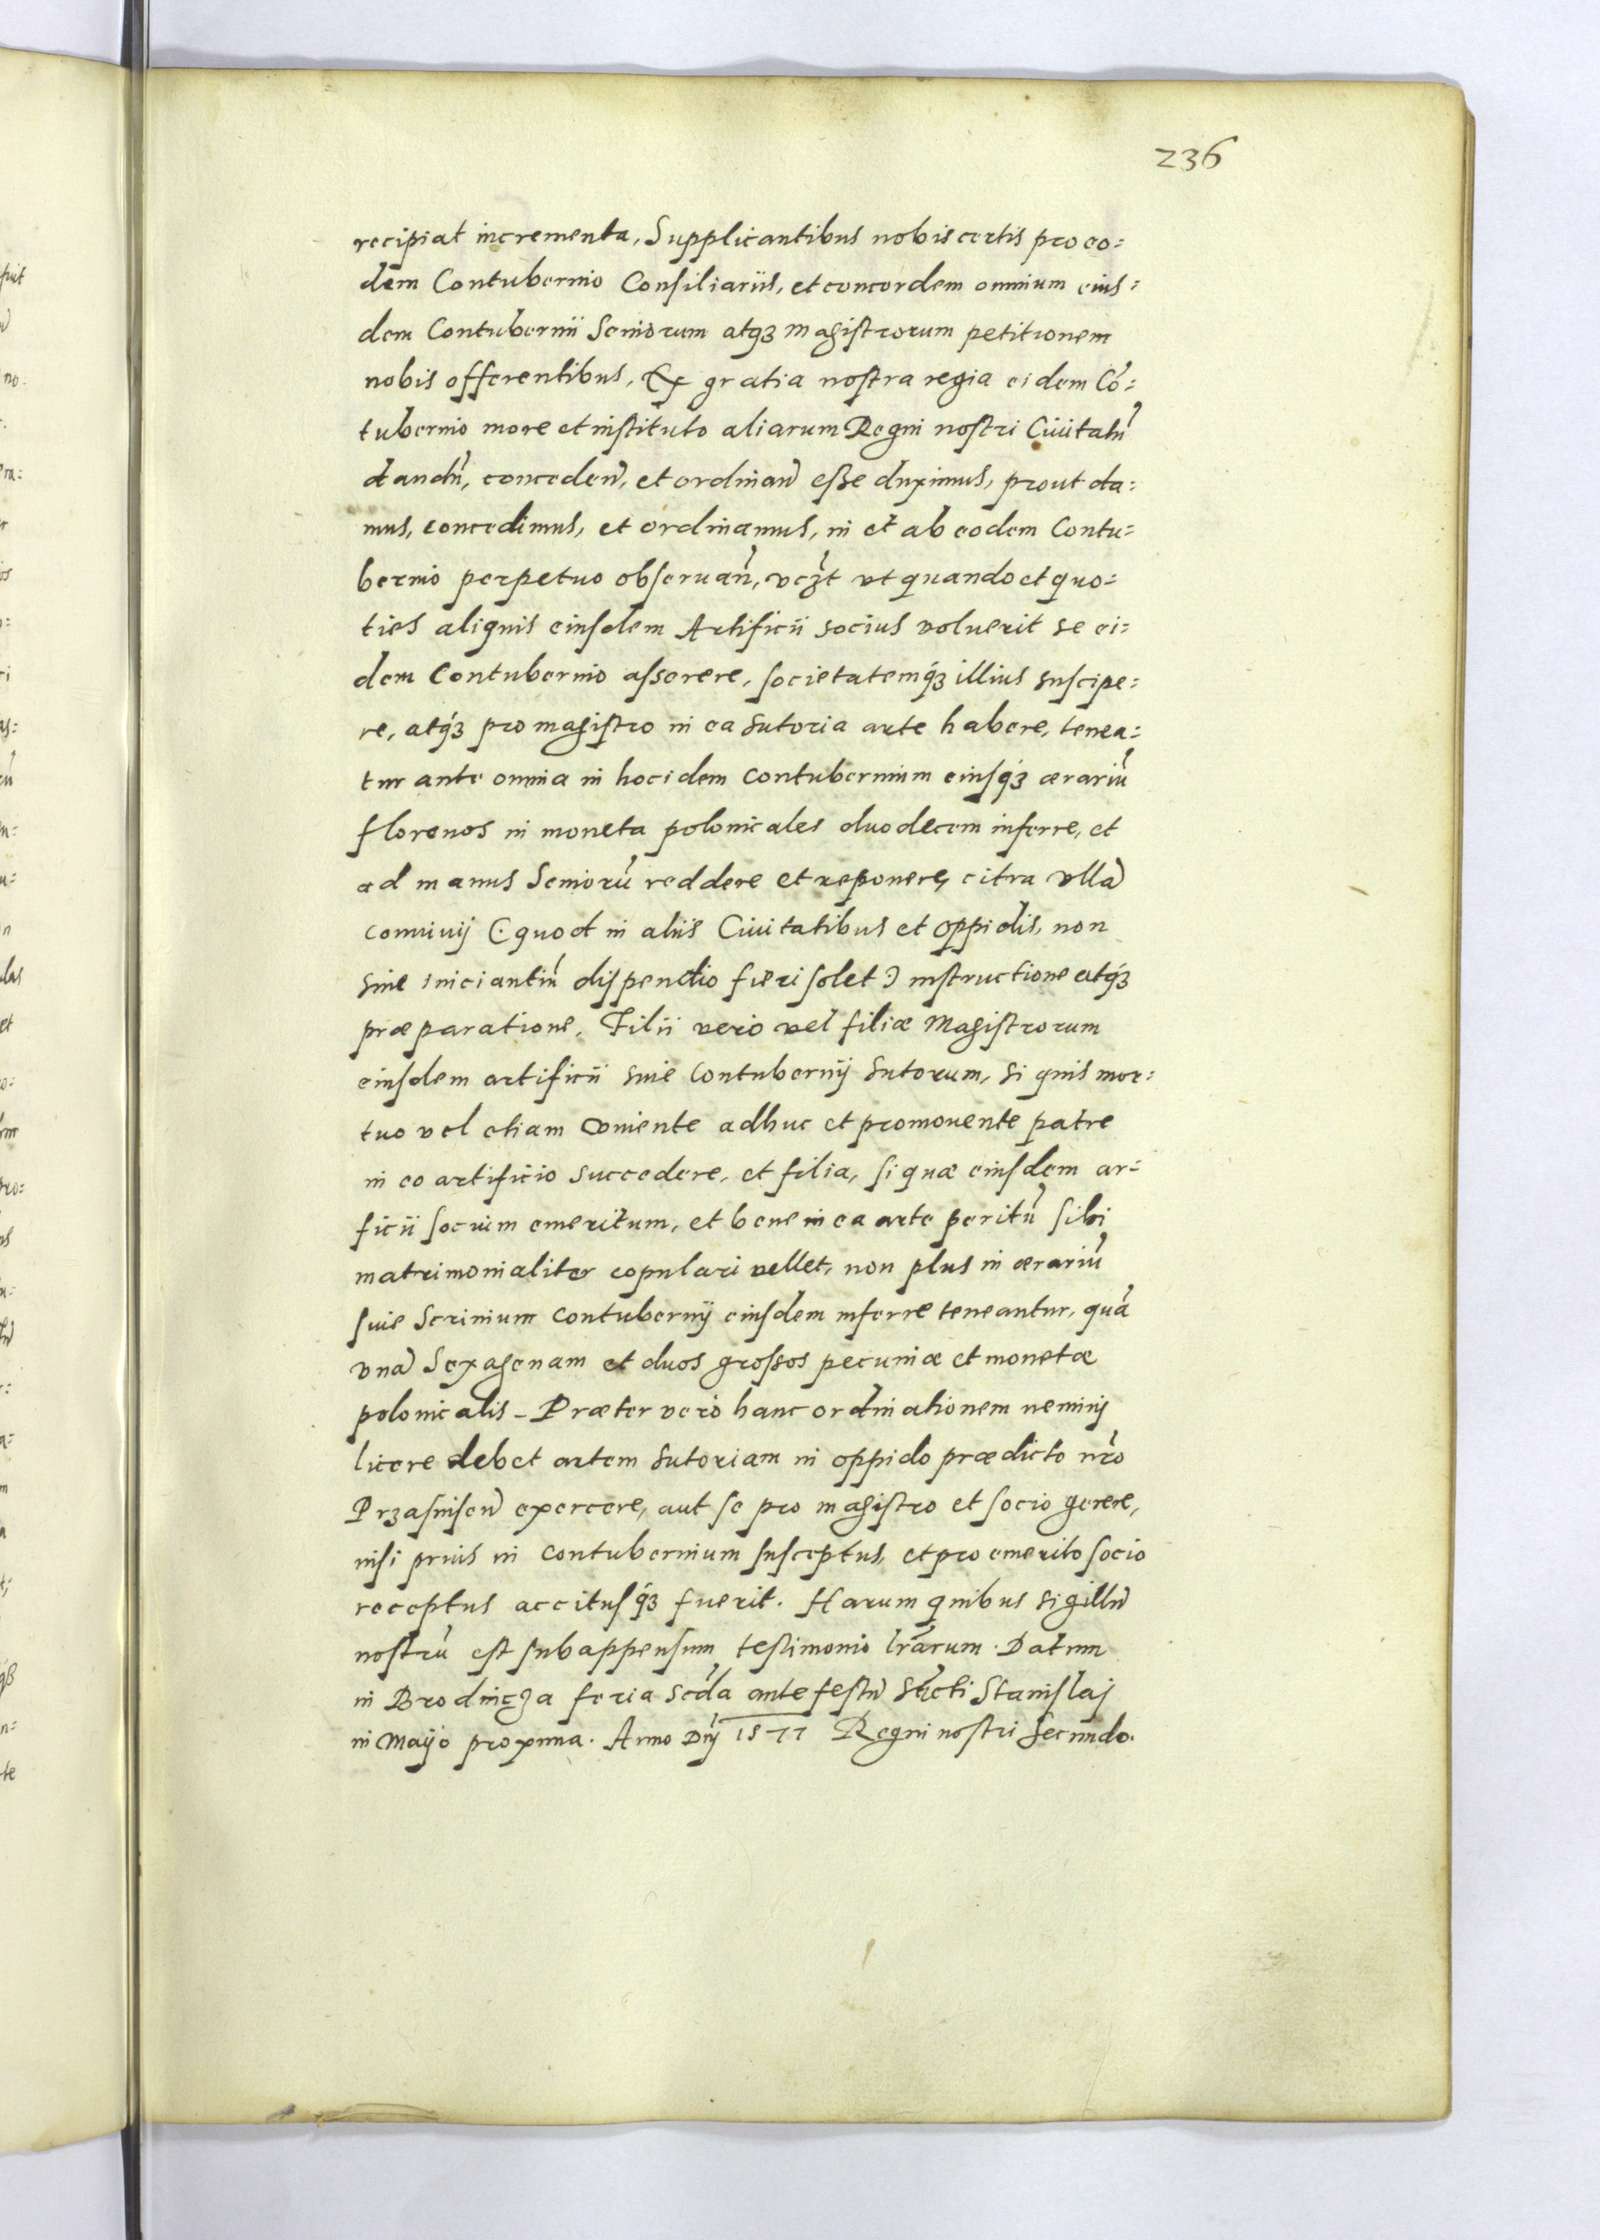 236
recipiat incrementa, Supplicantibus nobis certis pro eo:
dem Contubernio Consiliariis, et concordem omnium eius:
dem Contubernii Seniorum atq3 Magistrorum petitionem
nobis offerentibus, Ex gratia nostra regia eidem Cō:
tubernio more et instituto aliarum Regni nostri Ciuitatū
dandū, conceden̄, et ordinan̄ esse duximus, prout da:
mus, concedimus, et ordinamus, in et ab eodem Contu:
bernio perpetuo obseruan̄, vcz̄t vt quando et quo:
ties aliquis eiusdem Artificii socius voluerit se ei:
dem Contubernio asserere, societatemq3 illius suscipe:
re, atq3 pro magistro in ea sutoria arte habere, tenea:
tur ante omnia in hoc idem contubernium eiusq3 ærariū
florenos in moneta polonicales duodecem inferre, et
ad manus Seniorū reddere et reponere, citra vllā
conuiuij (: quod in aliis Ciuitatibus et oppidis, non
sine iniciantiū dispendio fieri solet :) instructione atq3
præparatione. Filii vero vel filiæ Magistrorum
eiusdem artificii siue contubernij sutorum, si quis mor:
tuo vel etiam viuente adhuc et promouente patre
in eo artificio succedere, et filia, si quæ eiusdem ar-
ficii socium emeritum, et bene in ea arte peritū sibi
matrimonialiter copulari vellet, non plus in ærariū
siue Scrinium contubernij eiusdem inferre teneantur, quā
vnā Sexagenam et duos grossos pecuniæ et monetæ
polonicalis - Præter vero hanc ordinationem neminj
licere debet artem sutoriam in oppido prædicto nr̄o
Przasnisen̄ exercere, aut se pro magistro et socio gerere,
nisi prius in contubernium susceptus, et pro emerito socio
receptus accitusq3 fuerit. Harum quibus sigillū
nostrū est subappensum testimonio lr̄arum. Datum
in Brodnicza feria sec̄da ante festū Sācti Stanislaj
in Mayo proxima. Anno Dn̄j 1577 Regni nostri Secundo.